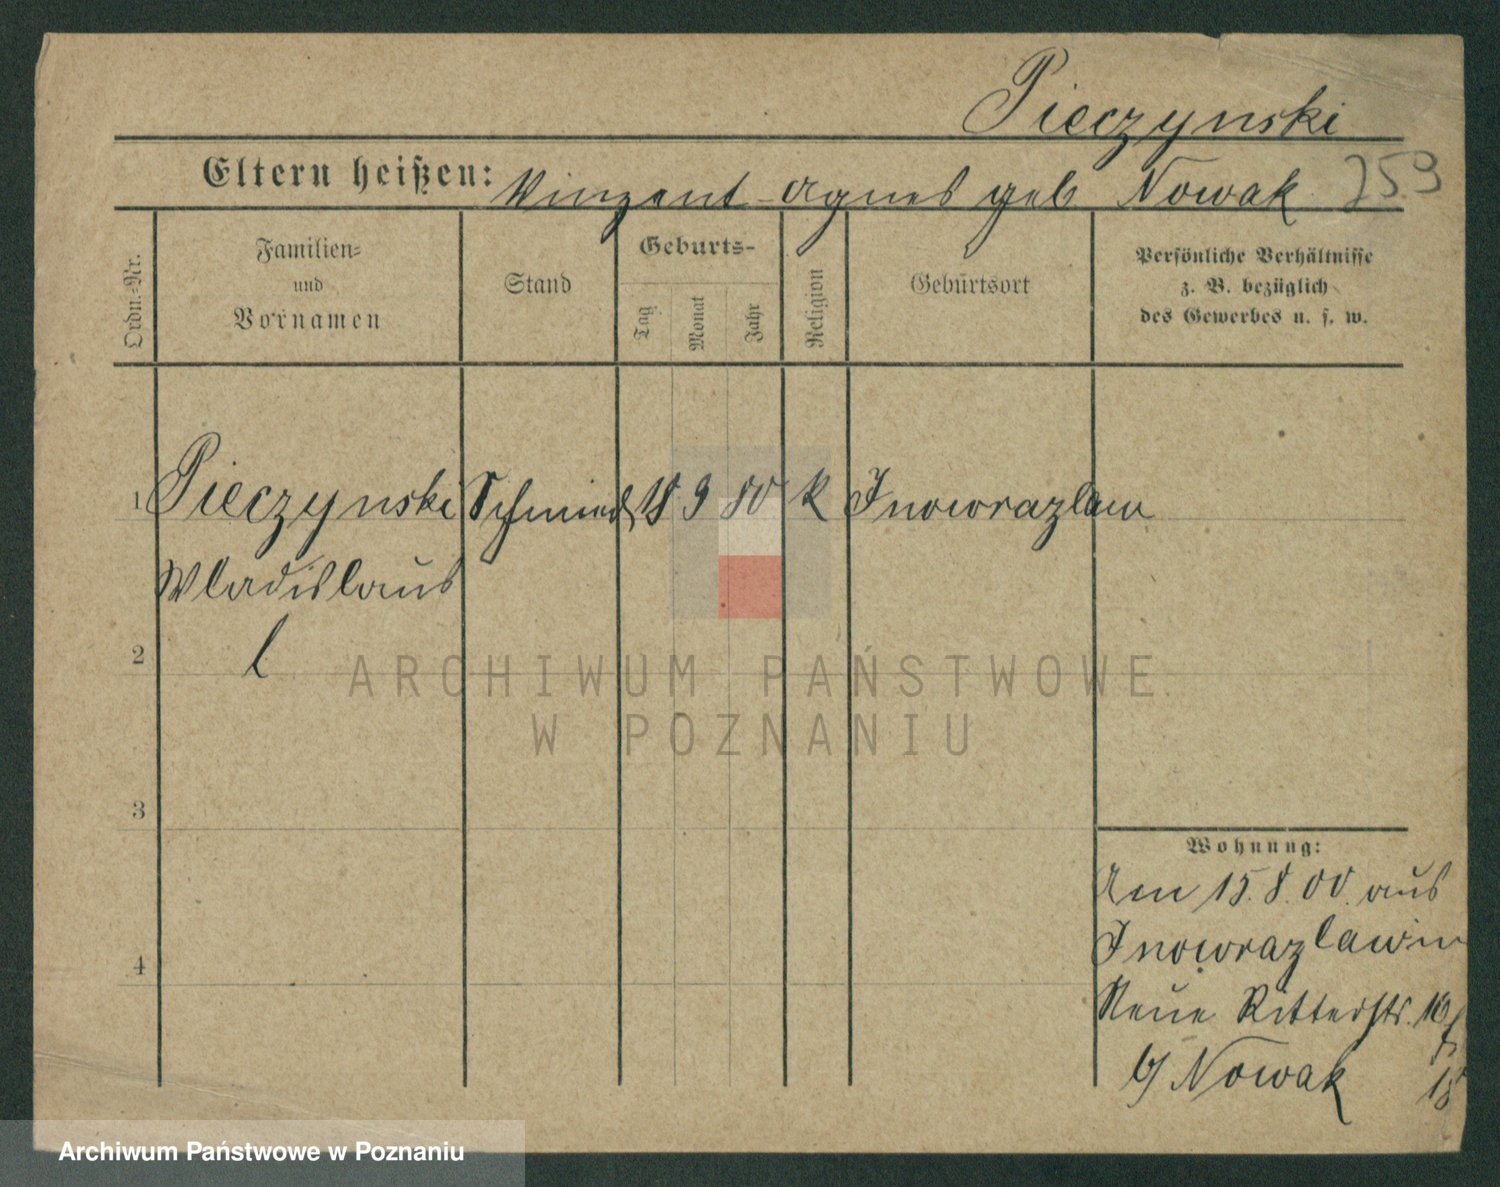 Pieczynski
Eltern heißen: Vinzent - Agnes geb Nowak 759
Ordn.-Nr.
Familien-
und
Vornamen
Stand
Geburts-
Tag
Monat
Jahr
Religion
Geburtsort
Persönliche Verhältnisse
z. B. bezüglich
des Gewerbes u. s. w.
1 Pieczynski Schmied 18 9 80 K Inowrazlaw
Wladislaus
l
2
ARCHIWUM PAŃSTWOWE
W POZNANIU
3
4
Wohnung:
Am 15.8.00. aus
Inowrazlaw in
Neue Ritterstr.
b/ Nowak
Archiwum Państwowe w Poznaniu